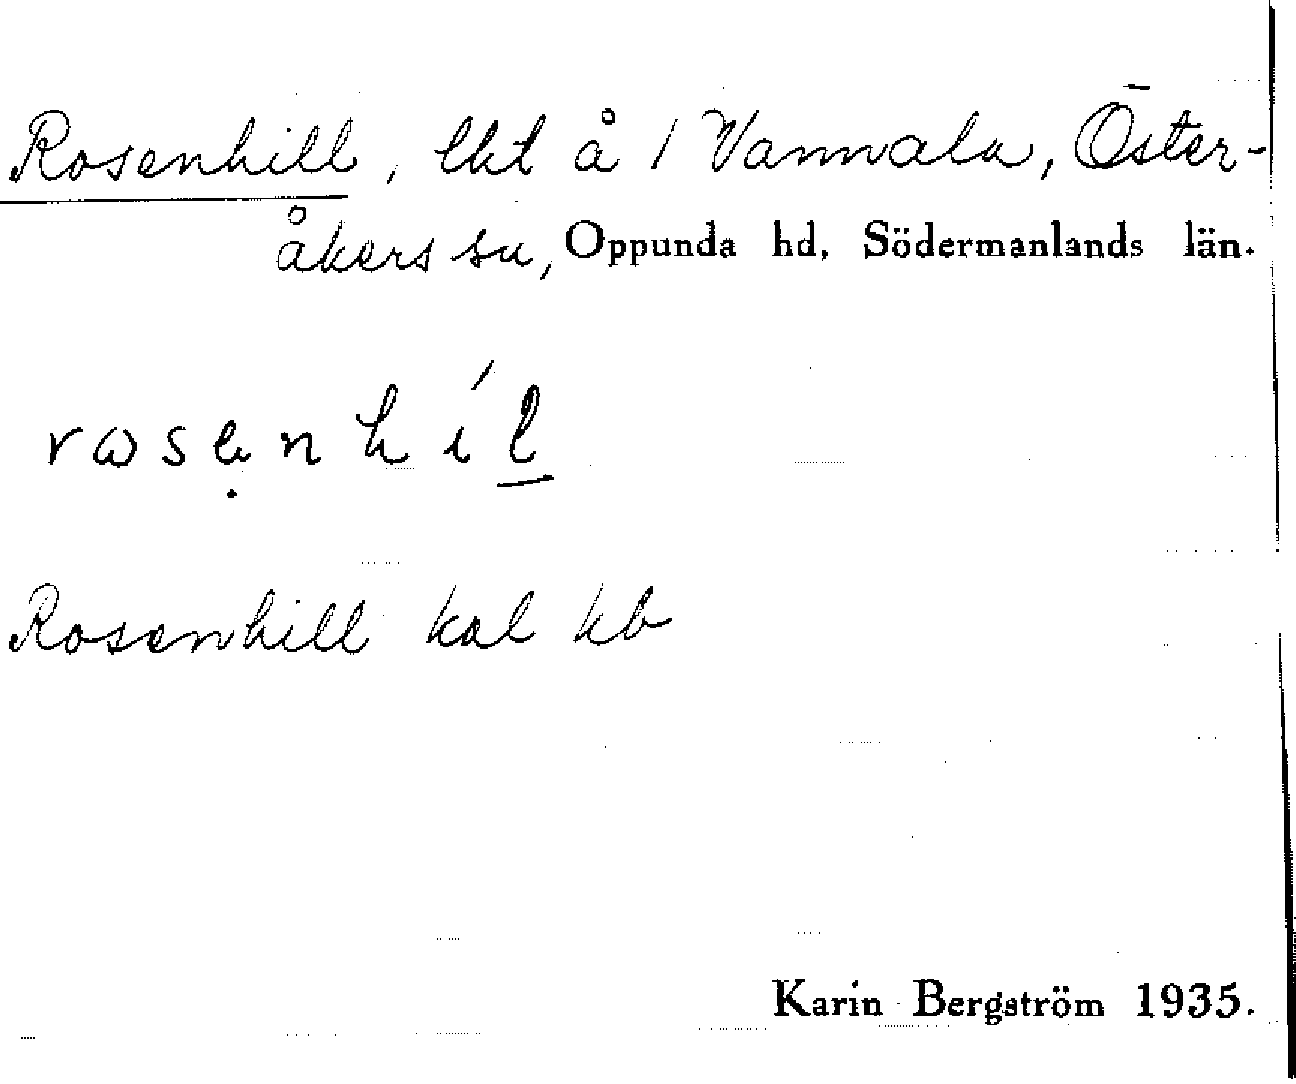 Rosenhill, lht å 1 Vannala, Öster-
åkers sn, Oppunda hd, Södermanlands län.
rωsẹnhíl̲
Rosenhill kal kb
Karin Bergström 1935.